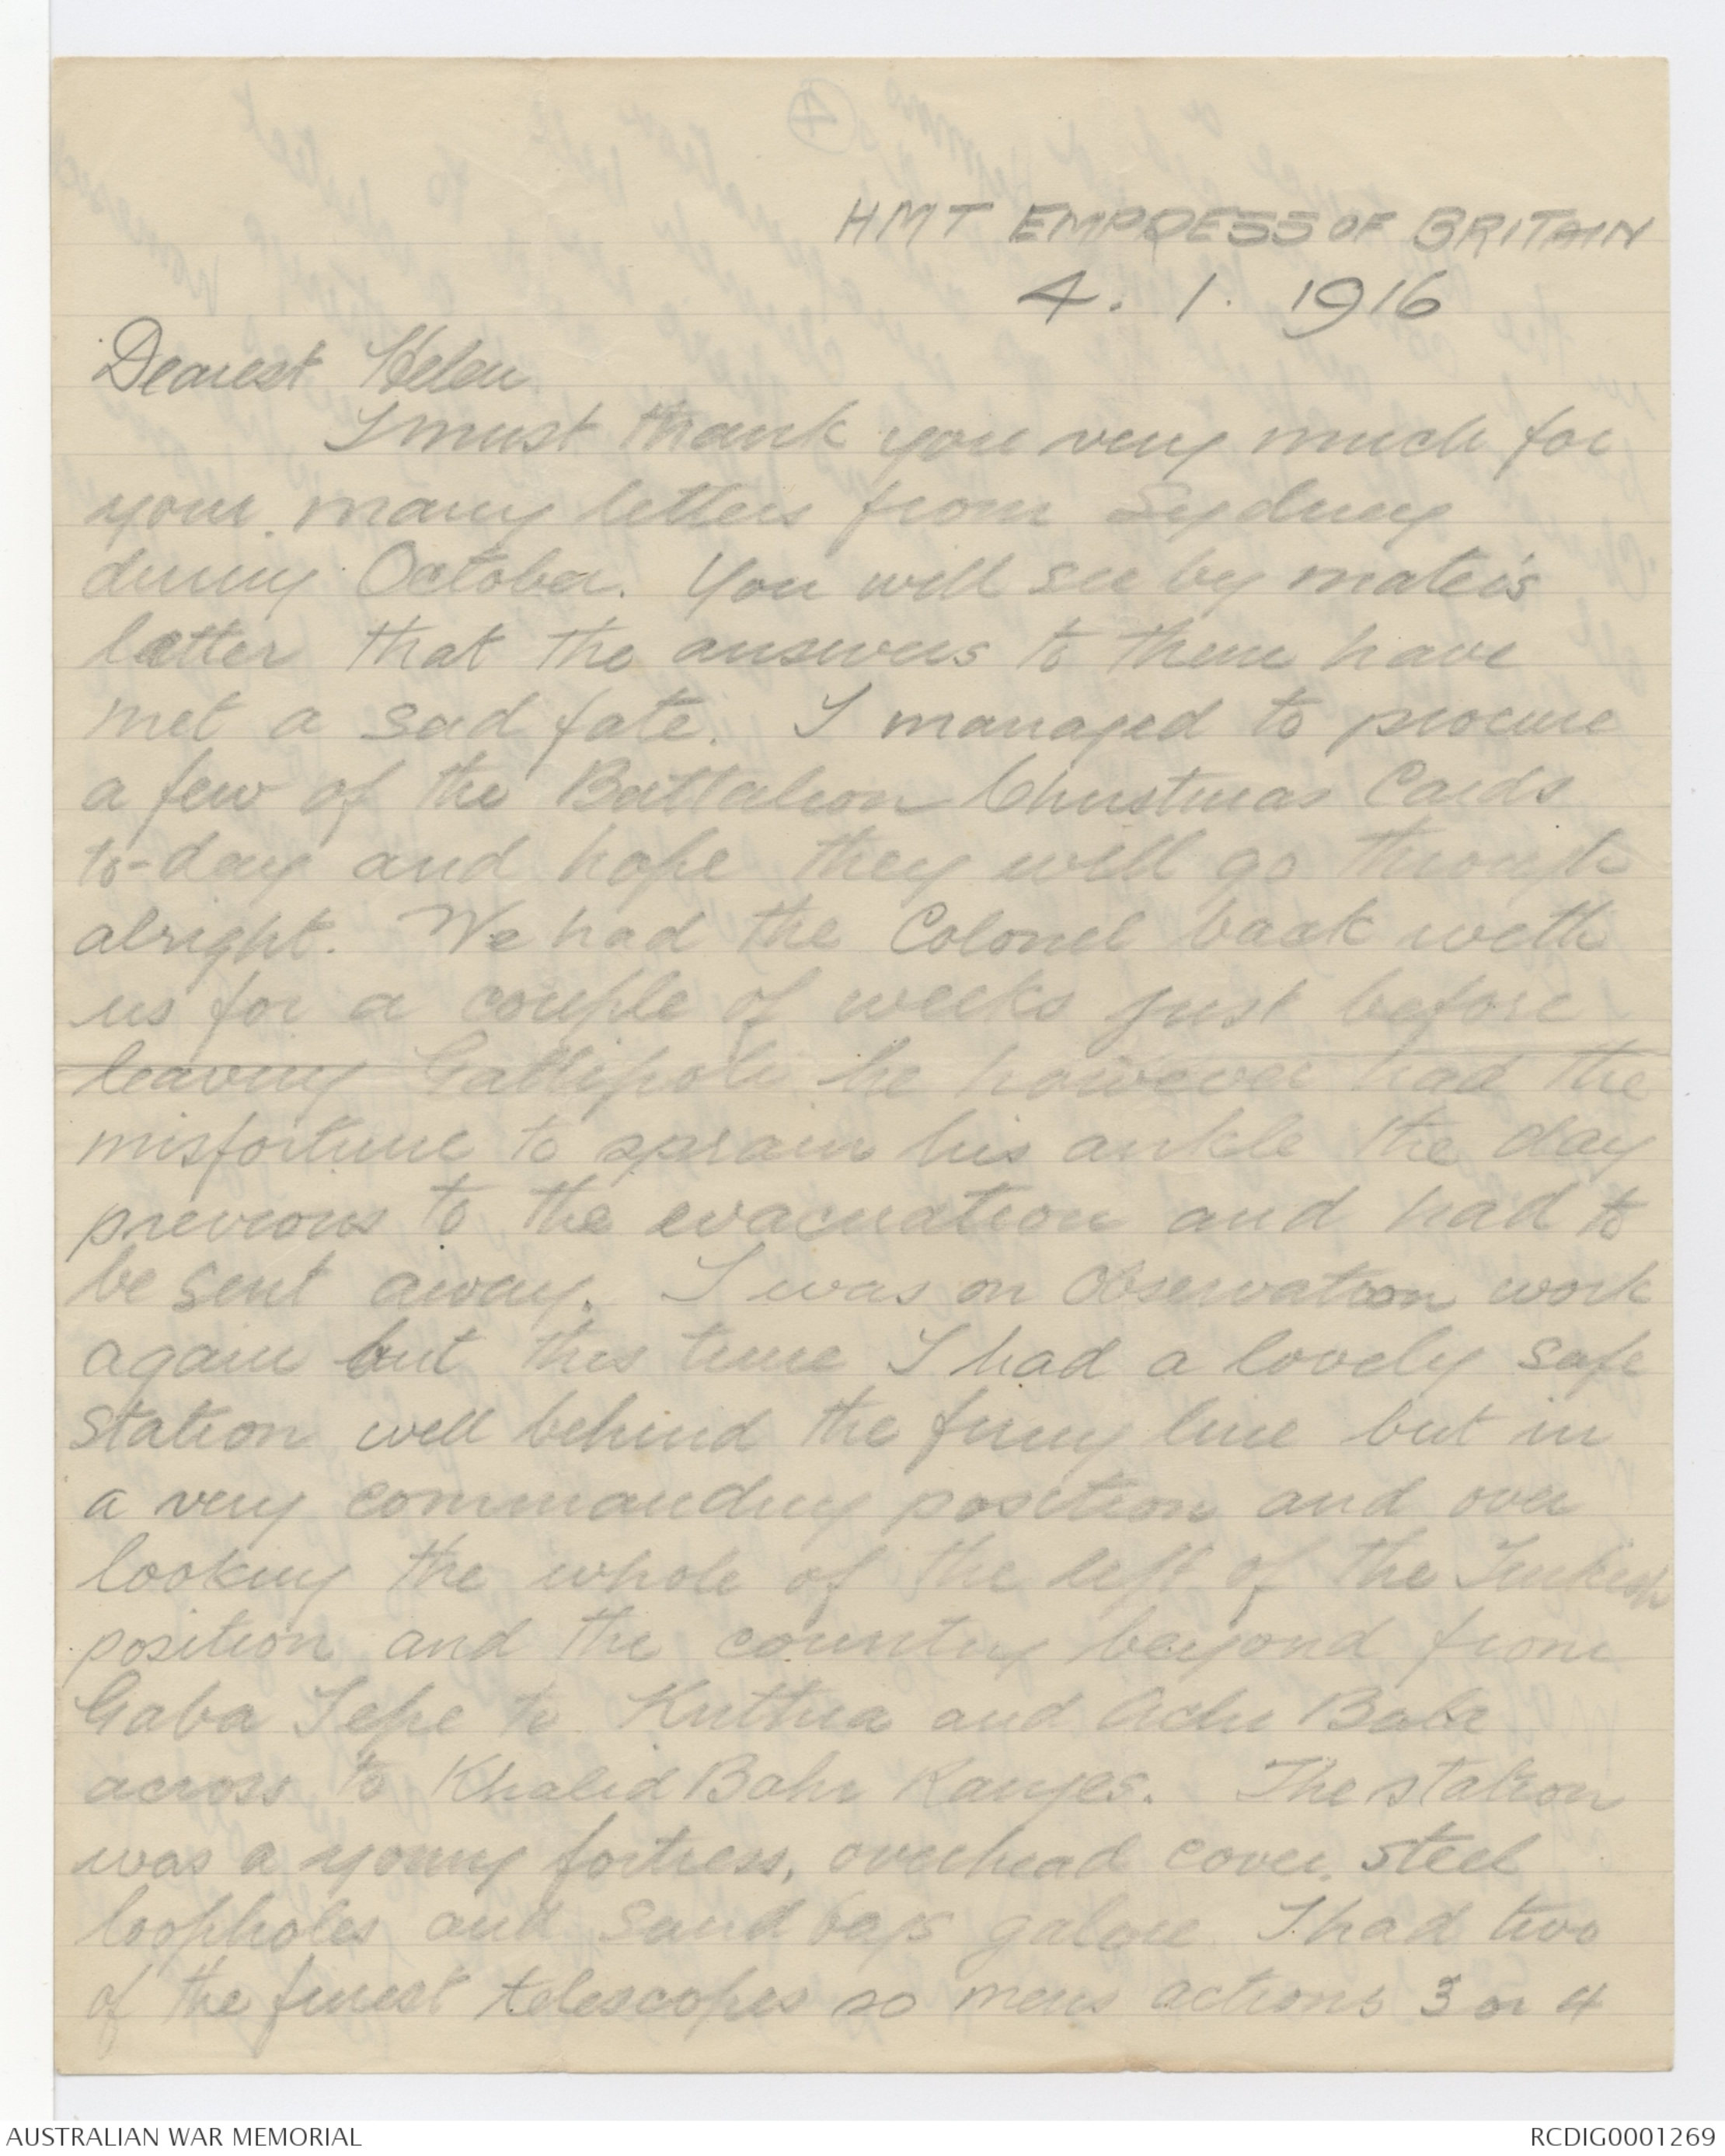 HMT EMPRESS OF BRITAIN
4. 1. 1916
Dearest Helen
I must thank you very much for
your many letters from Sydney
during October. You will see by mater's
letter that the answers to them have
met a sad fate. I managed to procure
a few of the Battalion Christmas Cards
to-day and hope they will go through
alright. We had the Colonel back with
us for a couple of weeks just before
leaving Gallipoli he however had the
misfortune to sprain his ankle the day
previous to the evacuation and had to
be sent away. I was on Observation work
again but this time I had a lovely safe
station well behind the firing line but in
a very commanding position and over
looking the whole of the left of the Turkish
position and the country beyond from
Gaba Tepe to Krithia and Achi Baba
across to Khalid Bahr Ranges. The station
was a young fortress, overhead cover, steel
loopholes and sand bags galore I had two
of the finest telescopes so mens actions 3 or 4
AUSTRALIAN WAR MEMORIAL
RCDIG0001269